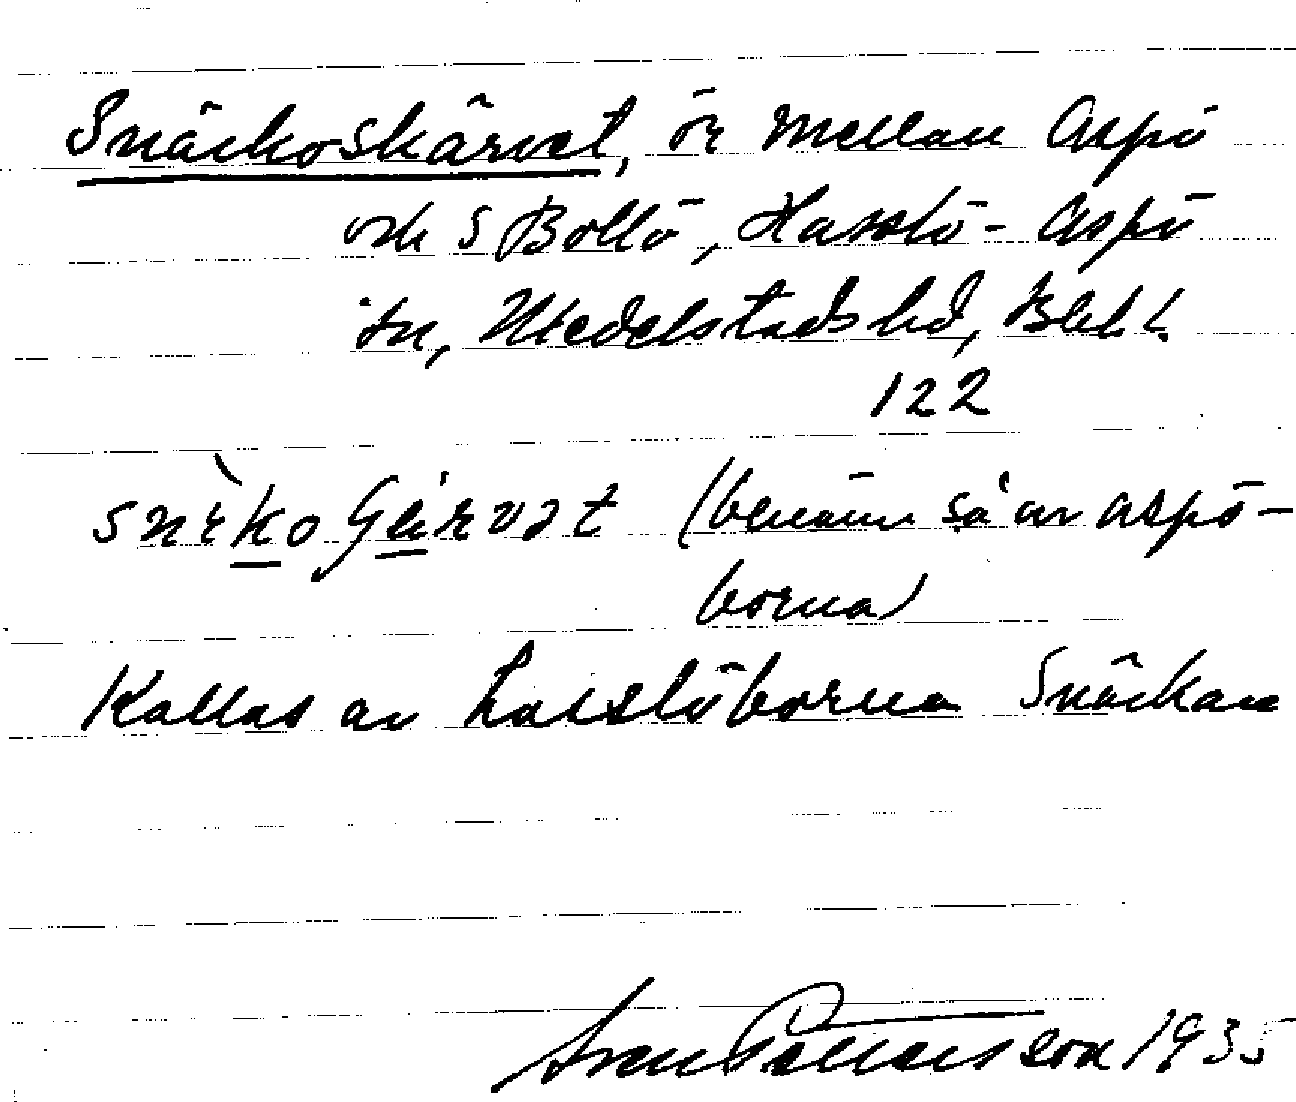 Snäckoskärvet, ör mellan Aspö
och S Bollö, Hasslö - Aspö
sn, Medelstads hd, Blek l.
122
(benämn så av aspö-
borna)
Kallas av hasslöborna Snäckan
Sven Pettersson 1935